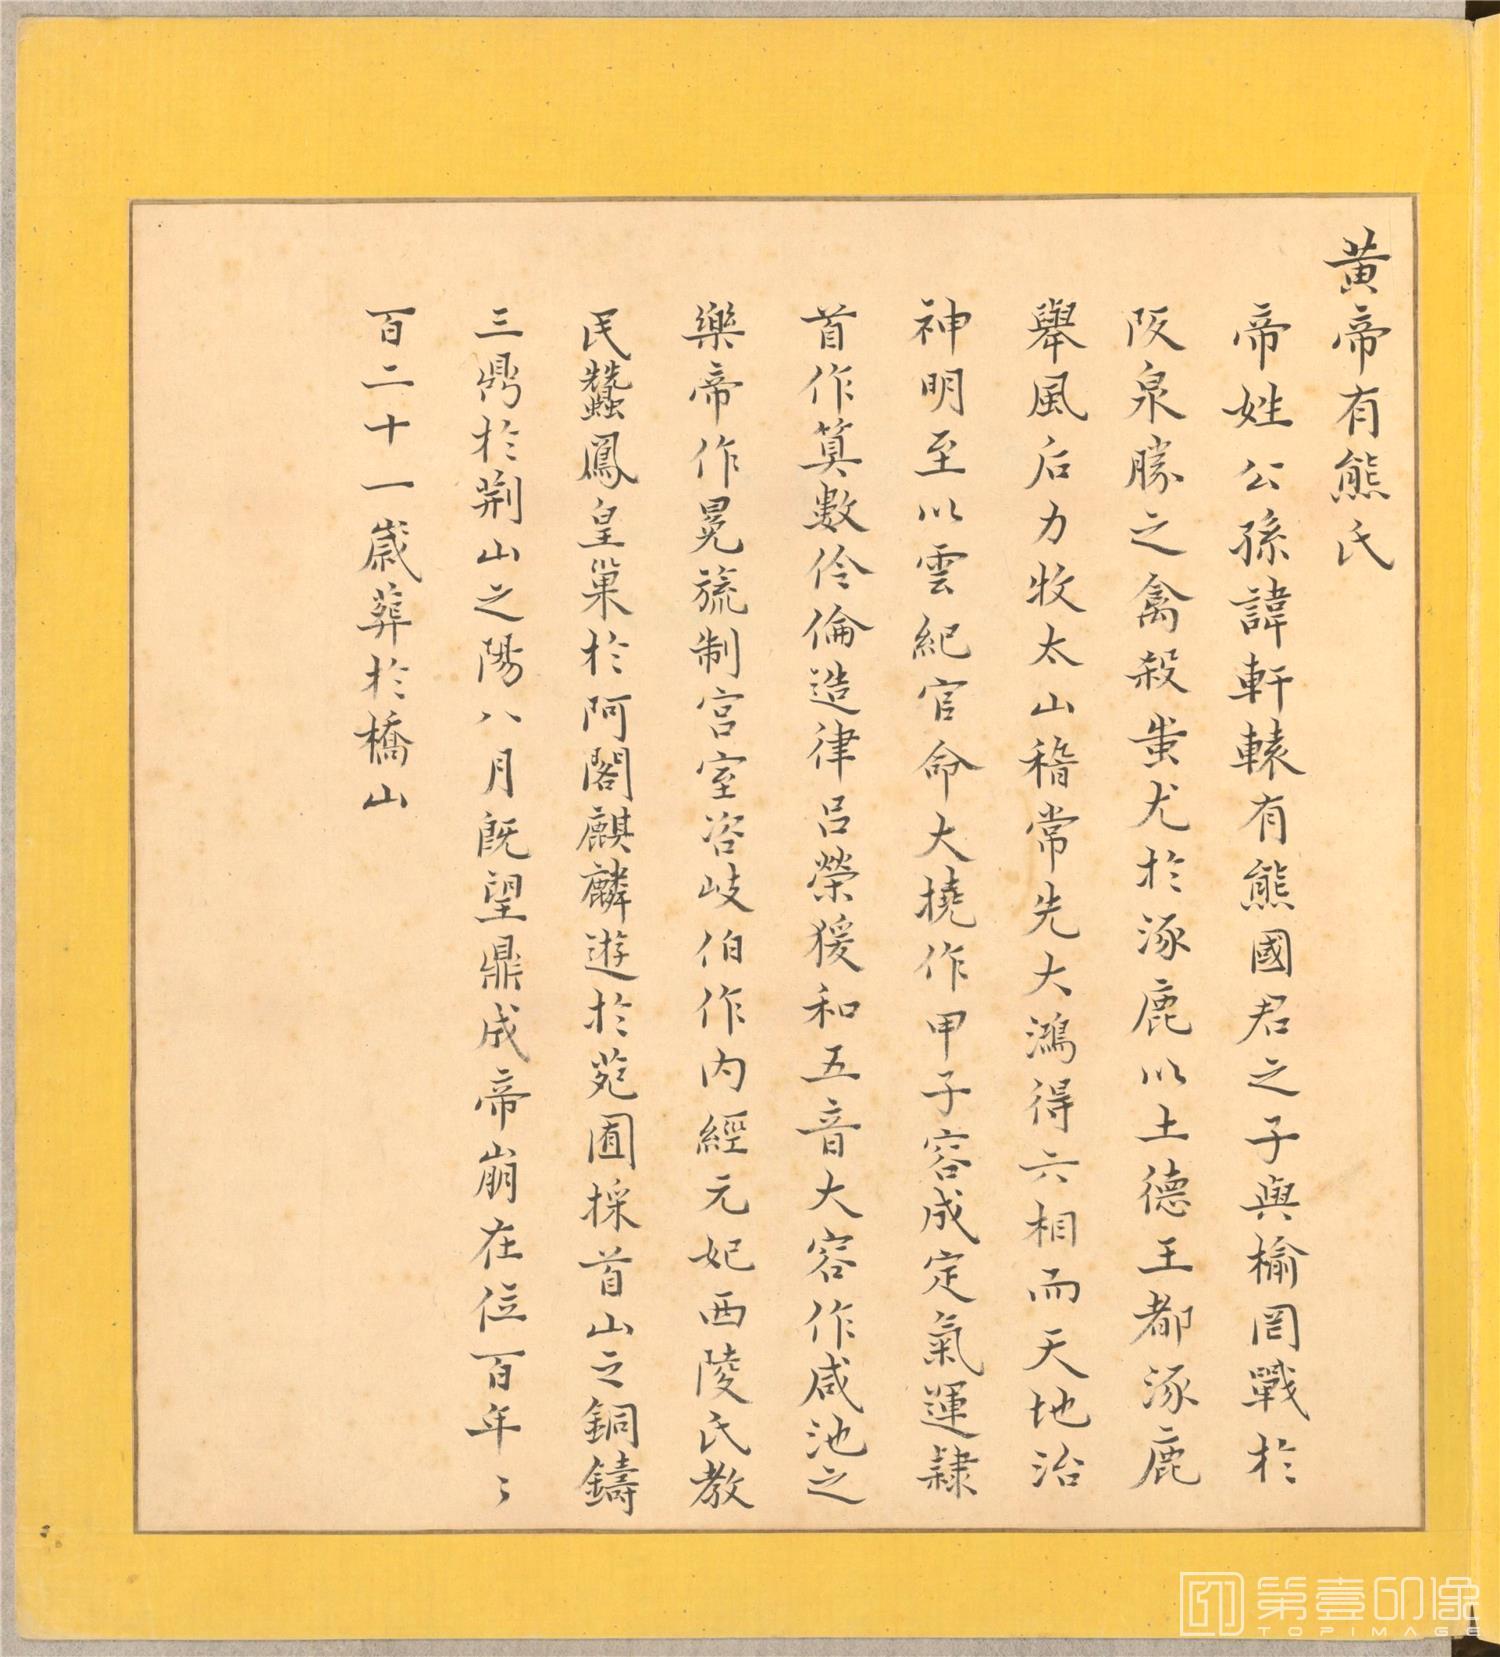 黃帝有熊氏
帝姓公孫諱軒轅有熊國君之子與榆罔戰於
阪泉勝之禽殺蚩尤於涿鹿以土德王都涿鹿
舉風后力牧太山稽常先大鴻得六相而天地治
神明至以雲紀官命大撓作甲子容成定氣運隸
首作算數伶倫造律呂榮猨和五音大容作咸池之
樂帝作冕旒制宫室咨岐伯作内經元妃西陵氏教
民蠶鳳皇巢於阿閣麒麟遊於苑囿採首山之銅鑄
三鼎於荆山之陽八月既望鼎成帝崩在位百年〻
百二十一歲葬於橋山
第壹印像
TOPIMAGE